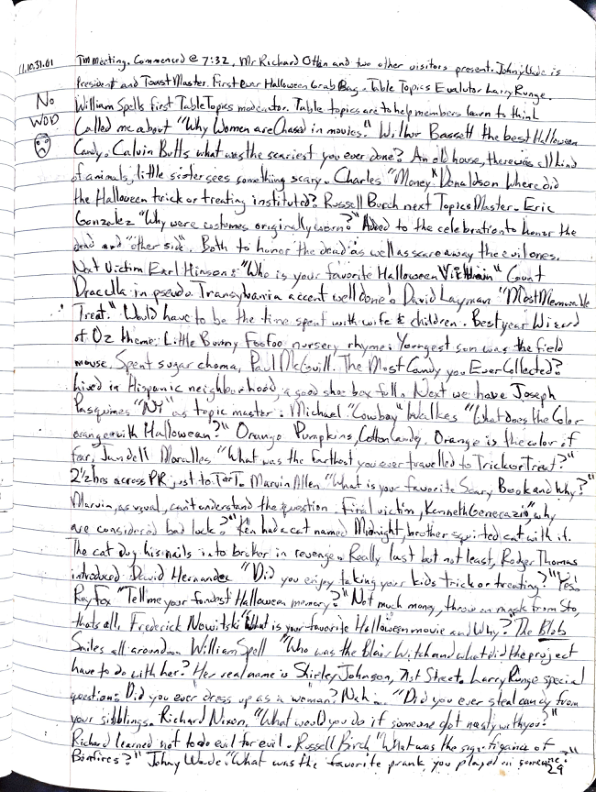 11.10.31.01
No
WOD
TM meeting. Commenced @ 7:32, Mr Richard Otten and two other visitors present. Johny Wade is
President and Toast Master. First ever Halloween Grab Bag. Table Topics Evalutor Larry Runge.
William Spells first Table Topics moderator. Table topics are to help members learn to think
Called me about "Why Women are Chased in movies." Wilbur Bassett the best Halloween
Candy. Calvin Butts what was the scariest you ever done? An old house, there was all kind
of animals, little sister sees something scary. Charles "Money" Donaldson Where did
the Halloween trick or treating instituted? Russell Burch next Topics Master. Eric
Gonzalez "Why were costumes originally worn?" Added to the celebration to honor the
dead and "other side". Both to honor the dead as well as scare away the evil ones.
Next victim Earl Hinson: "Who is your favorite Halloween" Count
Dracula in pseudo Transylvania accent well done! David Layman "Most Memorable
Treat." Would have to be the time spent with wife & children. Best year Wizard
of Oz theme. Little Bunny Foofoo nursery rhyme. Youngest son was the field
mouse. Spent sugar choma, Paul McGuill. The Most Candy you Ever Collected?
lived in Hispanic neighborhood, a good shoe box full. Next we have Joseph
as topic master: Michael "Cowboy" Walkes "What does the Color
orange with Halloween?" Orange Pumpkins, Cotton Candy. Orange is the color of
"What was the farthest you ever travelled to Trick or Treat?"
2½ hrs across PR just to TorT. Marvin Allen "What is your favorite Scary Book and Why?"
Marvin, as usual, can't understand the question. Final victim, Kenneth "why
are considered bad luck?" Ken had a cat named Midnight, brother squirted cat with it.
The cat dug his nails into brother in revenge. Really last but not least, Rodger Thomas
introduced David Hernandez "Did you enjoy taking your kids trick or treating?" "Yes!
Ray Fox "Tell me your fondest Halloween memory?" Not much money, throw on mask from Sto,
thats all. Frederick Nowitski "What is your favorite Halloween movie and Why? The Blob
Smiles all around. William Spell "Who was the Blair Witch and what did the project
have to do with her? Her real name is Shirley Johnson, 71st Street. Larry Runge special
question: Did you ever dress up as a woman? Nah... "Did you ever steal candy from
your sibblings. Richard Nixon, "What would you do if someone got nasty with you?"
Richard learned not to do evil for evil. Russell Birch "What was the significance of
Bonfires?" Johny Wade: "What was the favorite prank you played on someone?"
29